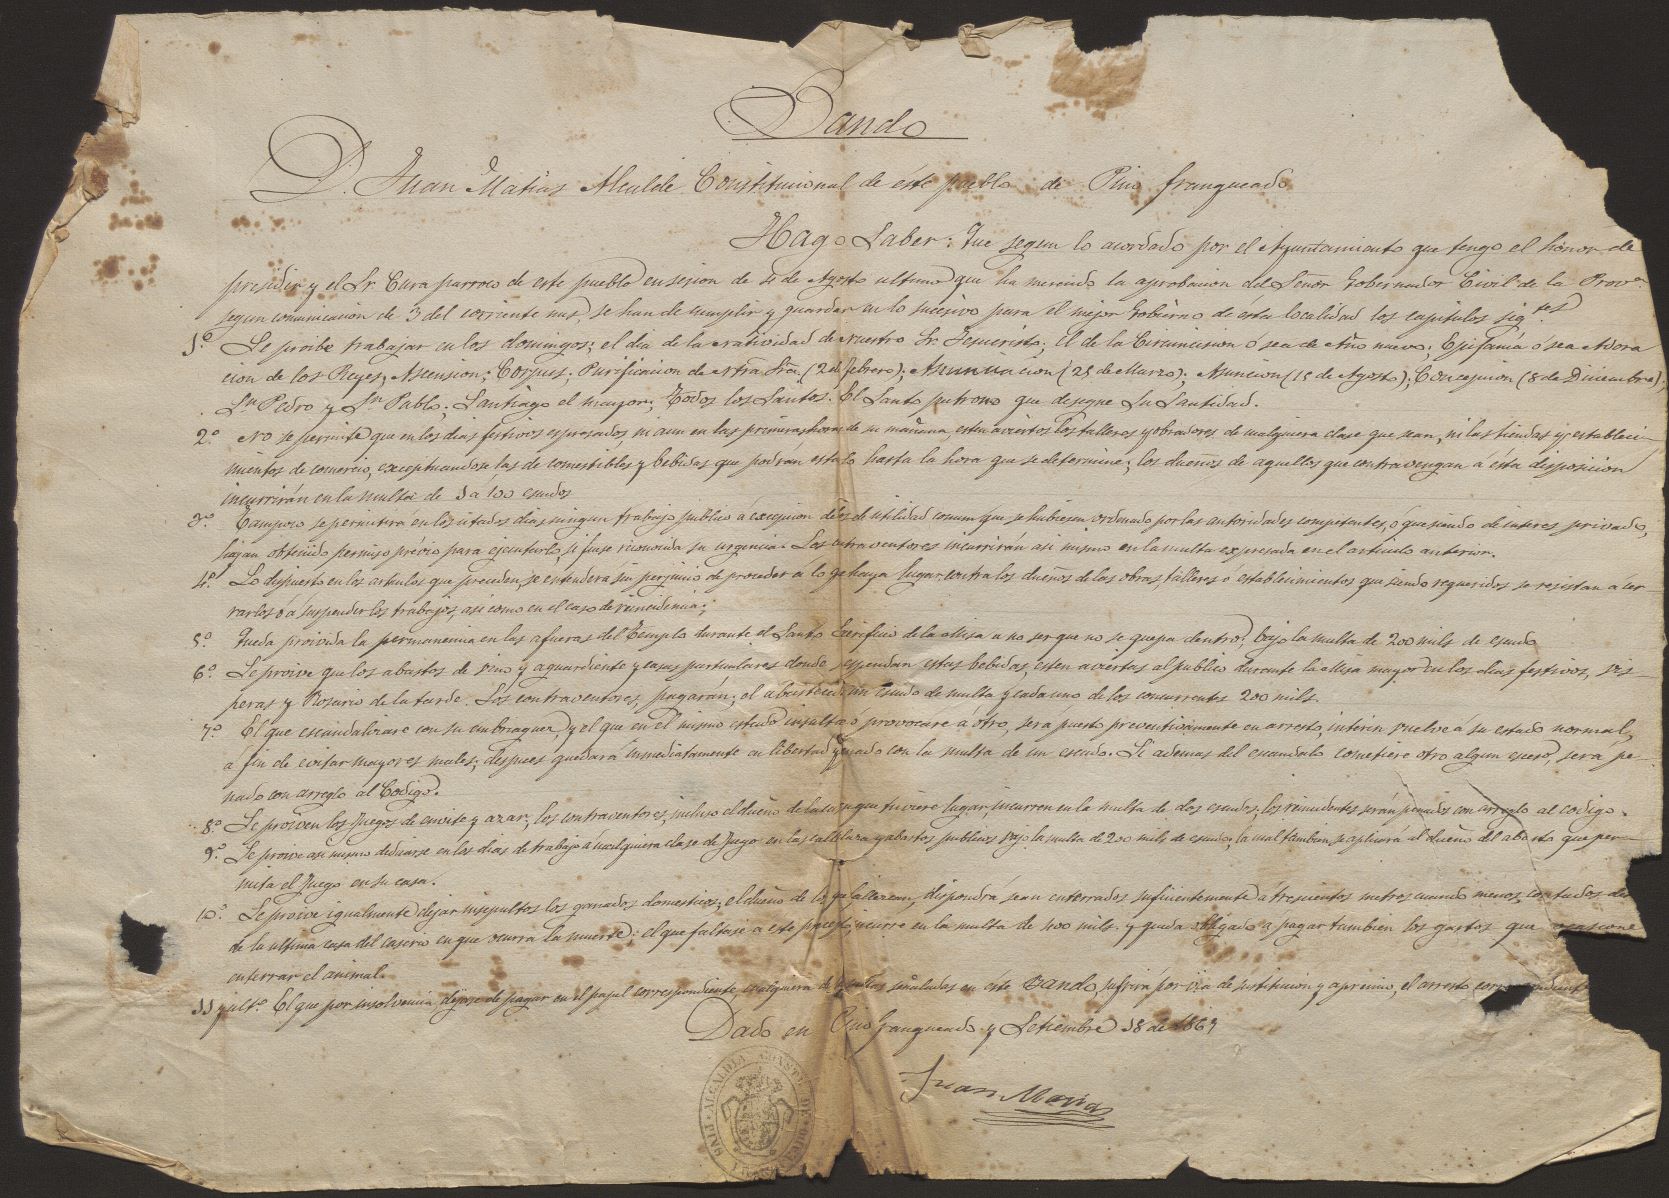 Bando
D. Juan Matias Alcalde Constitucional de éste pueblo de Pino franqueado
Hago Saber: Que segun lo acordado por el Ayuntamiento que tengo el honor de
presidir y el Sr. Cura parroco de este pueblo en sesion de 4 de Agosto ultimo que ha merecido la aprobacion del Señor Gobernador Civil de la Provª.
segun comunicacion de 3 del corriente mes, se han de cumplir y guardar en lo sucesivo para el mejor Gobierno de ésta localidad los capitulos sigtes
1.º Se proibe trabajar en los domingos; el dia de la Natividad de Nuestro Sr. Jesucristo; el de la Circuncision ó sea de Año nuevo; Epifanía ó sea Adora
cion de los Reyes; Ascension; Corpus; Purificacion de Ntra Sra. (2 de febrero); Anunciacion (25 de Marzo); Asuncion (15 de Agosto); Concepcion (8 de Diciembre);
Sn Pedro y Sn Pablo; Santiago el mayor; Todos los Santos. El Santo patrono que designe Su Santidad.
2.º No se permite que en los dias festivos espresados, ni aun en las primeras horas de su mañana, esten aviertos los talleres y obradores de cualquiera clase que sean, ni las tiendas y estableci-
mientos de comercio, exceptuandose las de comestibles y bebidas que podran estarlo hasta la hora que se determine; los dueños de aquellos que contravengan á ésta disposicion
incurrirán en la multa de 1 a 100 escudos
3.º Tampoco se permitirá en los citados dias ningun trabajo publico á excepcion de los de utilidad comun que se hubiesen ordenado por las autoridades competentes, ó que siendo de interes privado,
hajan obtenido permiso prévio para ejecutarlo, si fuese reconocida su urgencia. Los contraventores incurrirán asi mismo en la multa expresada en el articulo anterior.
4.º Lo dispuesto en los artculos que preceden, se entendera sin perjuicio de proceder a lo que haya lugar contra los dueños de las obras, talleres ó establecimientos que siendo requeridos se resistan a cer-
rarlos ó a suspender los trabajos, asi como en el caso de reincidencia;
5.º Queda proivida la permanencia en las afueras del Templo durante el Santo Sacrificio de la Misa a no ser que no se quepa dentro; bajo la multa de 200 mils de escudo
6.º Se proive que los abastos de vino y aguardiente y casas particulares donde se spendan estas bebidas, esten aviertas al publico durante la Misa mayor en los dias festivos, vis-
peras y Rosario de la tarde. Los contraventores, pagarán; el abastecedor un escudo de multa y cada uno de los concurrentes 200 mils.
7.º El que escandalizare con su embriaguez, y el que en el mismo estado insulta ó provocare a ótro, será puesto preventivamente en arresto, interin vuelve a su estado normal,
á fin de evitar mayores males; despues quedará inmediatamente en libertad y penado con la multa de un escudo. Si ademas del escandalo cometiere otro algun exceso, será pe-
nado con arreglo al Codigo.
8.º Se proiven los Juegos de envite y azar; los contraventores, incluso el dueño de la casa en que tuviere lugar, incurren en la multa de dos escudos, los reincidentes serán penados con arreglo al codigo.
9.º Se proive asi mismo dedicarse en los dias de trabajo á cualquiera clase de Juego en las calles y abastos publicos bajo la multa de 200 mils de escudo, la cual tambien se aplicará al dueño del abasto que per-
mita el Juego en su casa.
10.º Se proive igualmente dejar insepultos los ganados domesticos; el dueño de los que fallezcan, dispondrá sean enterrados suficientemente a trescientos metros cuando menos, contados de
de la ultima casa del caserio en que ocurra la muerte; el que faltase a este precepto incurre en la multa de 400 mils. y queda obligado a pagar tambien los gastos que ocasione
enterrar el animal.
11 y ultº. El que por insolvencia dejase de pagar en el papel correspondiente, cualquiera de las multas señaladas en este Bando, sufrirá por via de sustitucion y apremio, el arresto correspondiente
Dado en Pino franqueado y Setiembre 18 de 1867
Juan Matias
ALCALDIA CONSTL. DE PINO FRANQUEADO